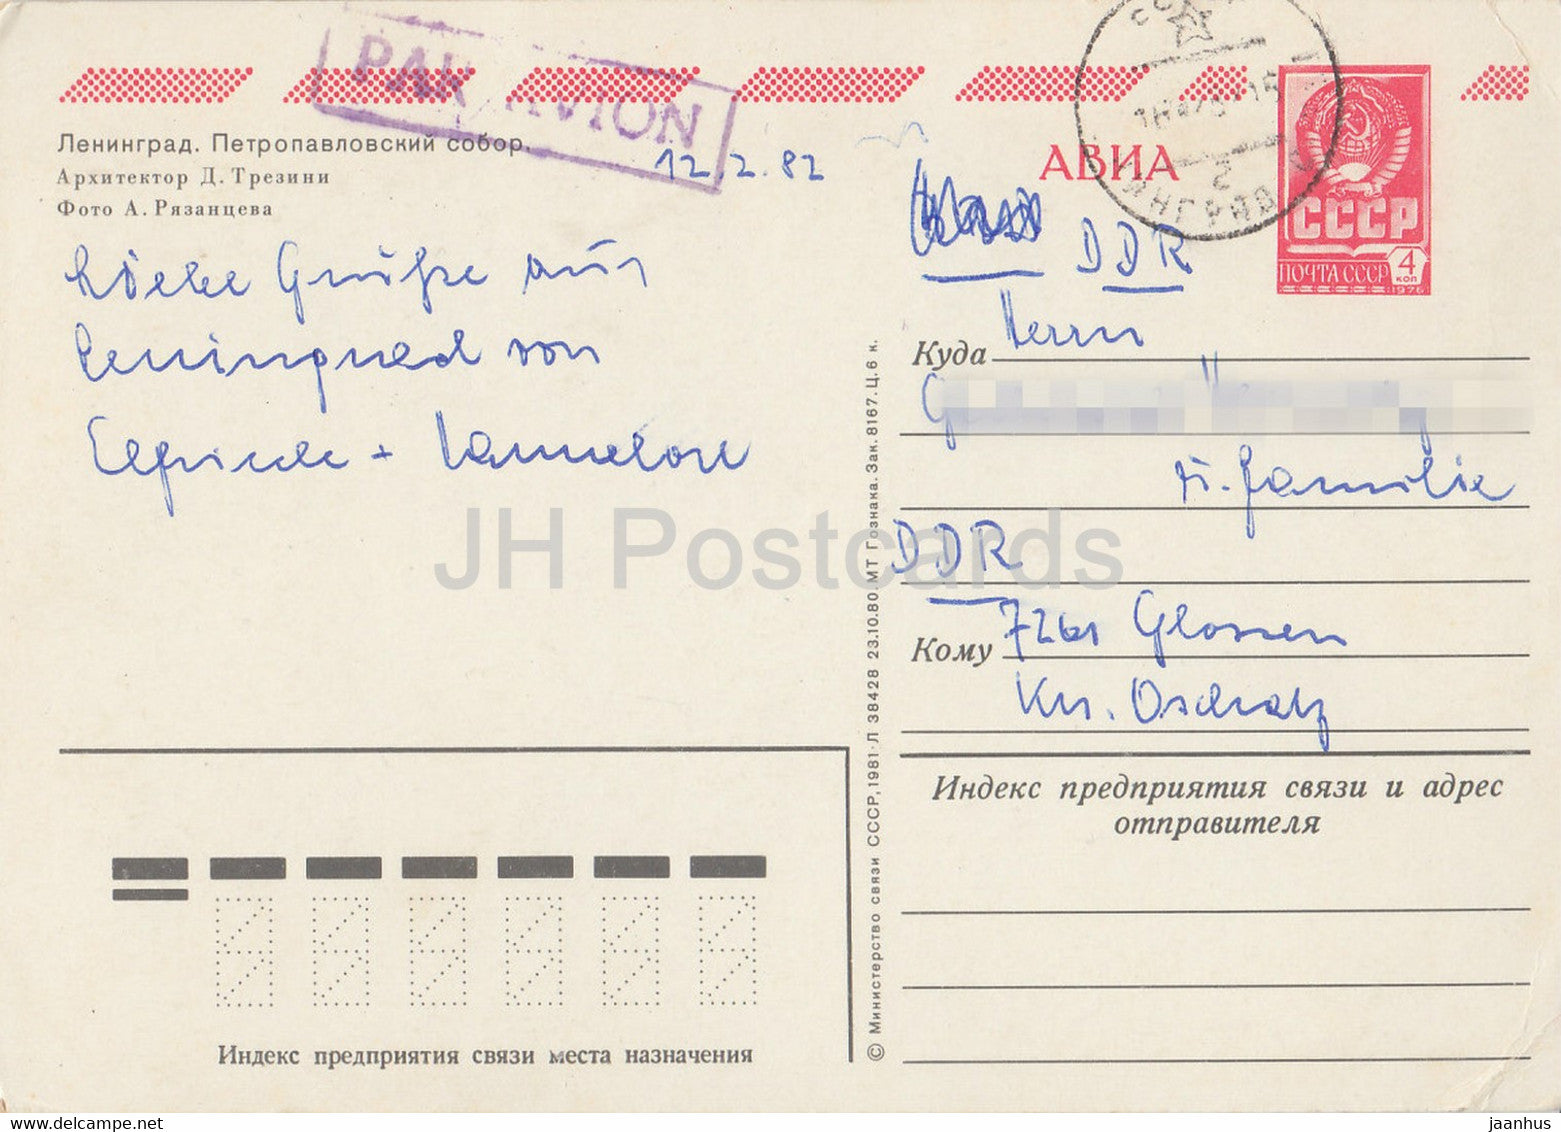 PAR AVION
Ленинград. Петропавловский собор.
Архитектор Д. Трезини
Фото А. Рязанцева
12.2.82
Liebe Grüße aus
Leningrad von
Elfriede + Hannelore
АВИА
СССР
ПОЧТА СССР 4 КОП
1976
DDR
Куда Herrn
u. Familie
DDR
Кому 7261 Glossen
Krs. Oschatz
Индекс предприятия связи и адрес
отправителя
Индекс предприятия связи места назначения
© Министерство связи СССР, 1981·Л 38428 23.10.80. МТ Гознака. Зак. 8167. Ц. 6 к.
JH Postcards
www.delcampe.net
jaanhus